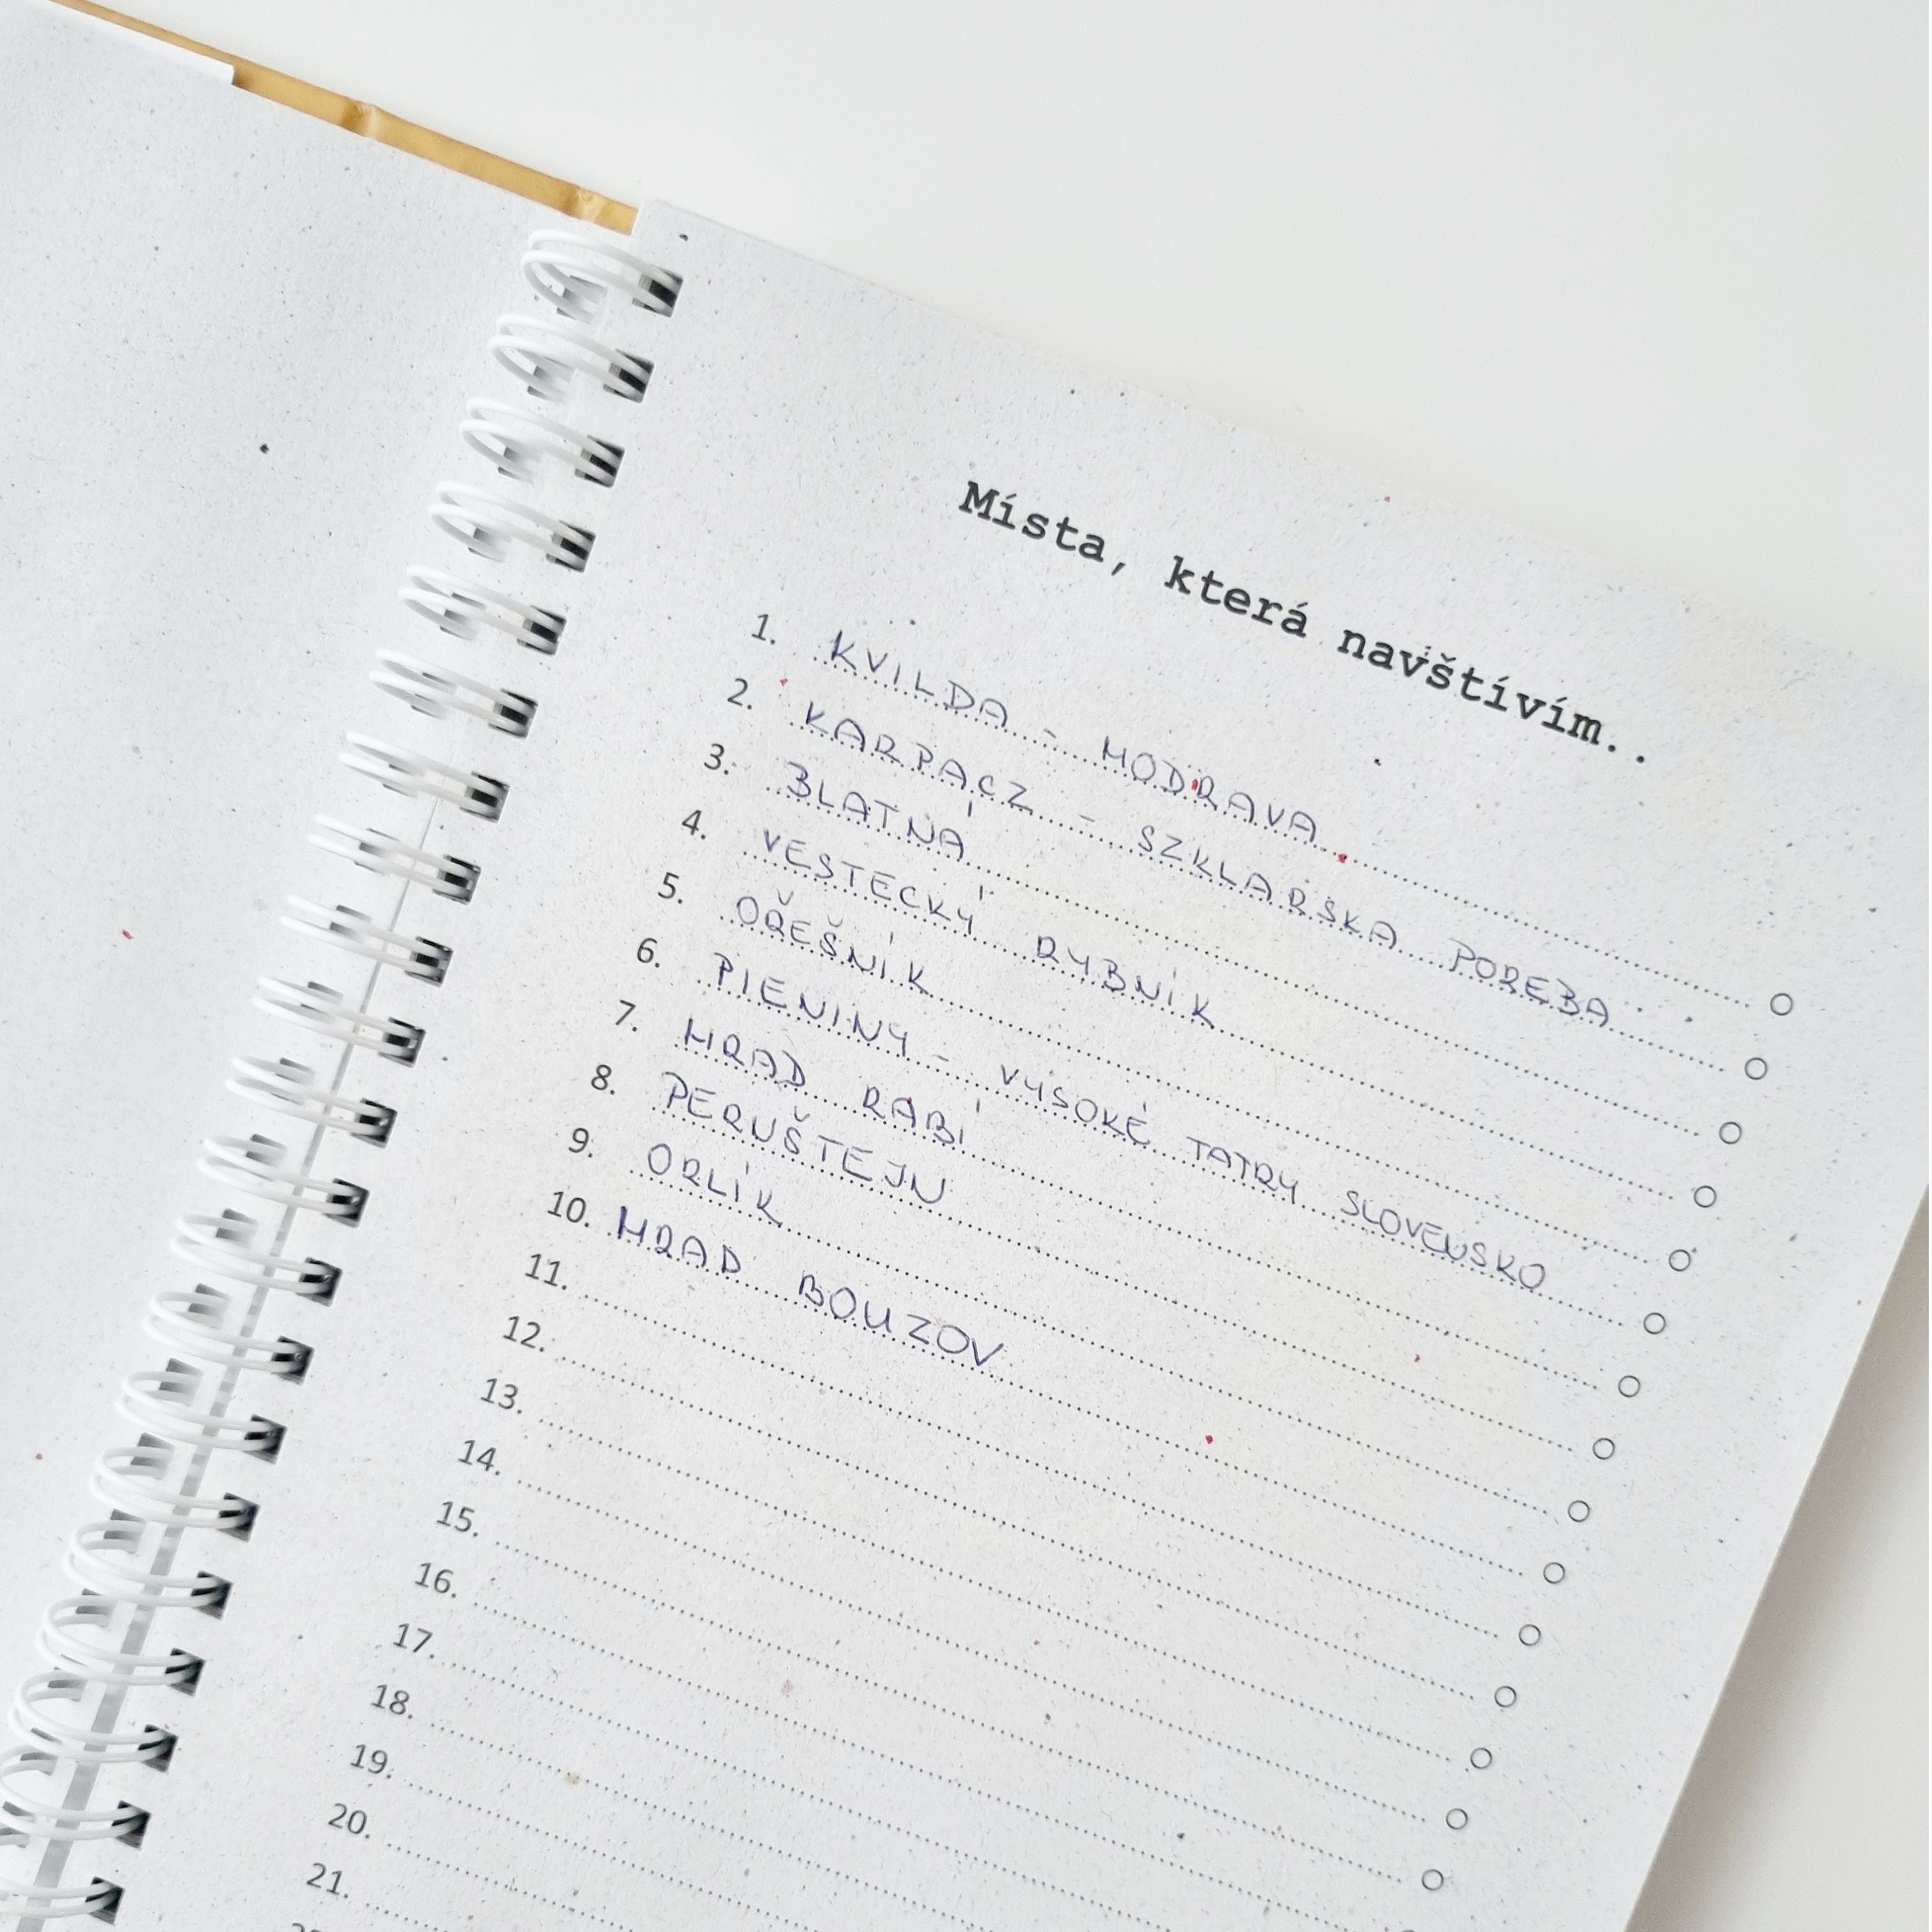 Místa, která navštívím..
1. KVILDA - MODRAVA
2. KARPACZ - SZKLARSKA POREBA
3. BLATNÁ
4. VESTECKÝ RYBNÍK
5. OŘEŠNÍK
6. PIENINY - VYSOKÉ TATRY SLOVENSKO
7. HRAD RABÍ
8. PERNŠTEJN
9. ORLÍK
10. HRAD BOUZOV
11.
12.
13.
14.
15.
16.
17.
18.
19.
20.
21.